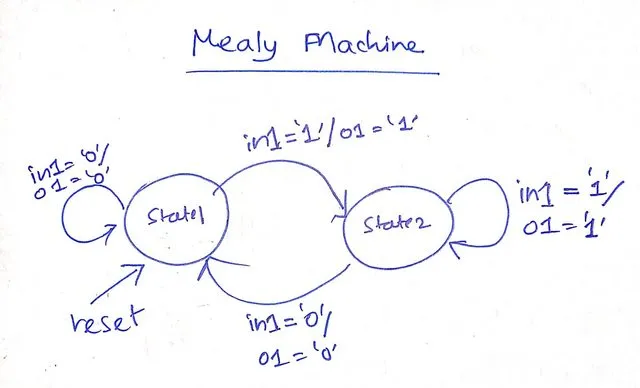 Mealy Machine
in1='1'/01='1'
in1='0'/
01='0'
State1
State2
in1='1'/
01='1'
reset
in1='0'/
01='0'